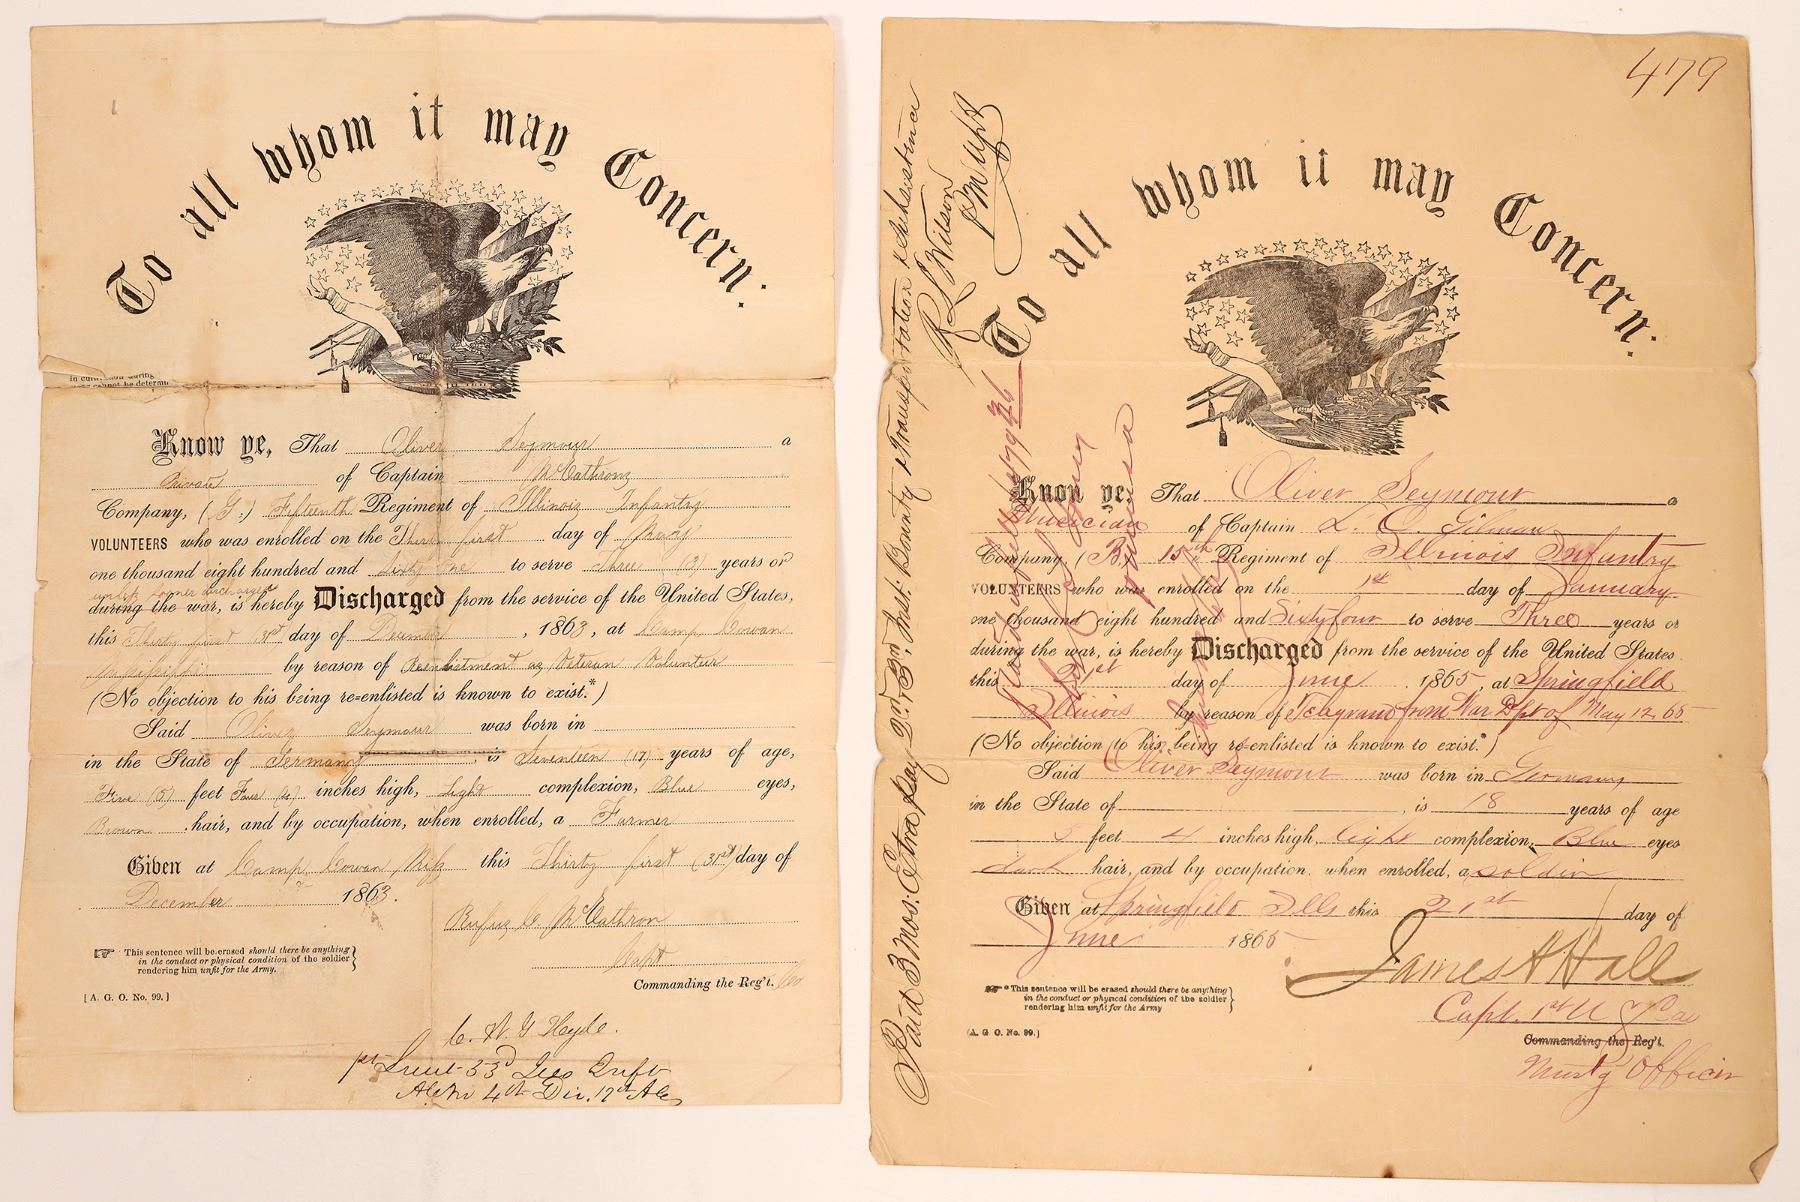 To all whom it may Concern:
In cur
not be determ
Know ye, That Oliver Seymour a
Private of Captain McCathron
Company, (G.) Fifteenth Regiment of Illinois Infantry
VOLUNTEERS who was enrolled on the Thirty first day of May
one thousand eight hundred and Sixty One to serve Three (3) years or
unless sooner discharged
during the war, is hereby Discharged from the service of the United States,
this Thirty first (31st) day of December, 1863, at Camp Cowan
Mississippi by reason of Reenlistment as Veteran Volunteer
(No objection to his being re=enlisted is known to exist.*)
Said Oliver Seymour was born in
in the State of Germany, is Seventeen (17) years of age,
Five (5) feet Four (4) inches high, Light complexion, Blue eyes,
Brown hair, and by occupation, when enrolled, a Farmer
Given at Camp Cowan Miss this Thirty first (31st) day of
December 1863.
Rufus C. McCathron
Capt
Commanding the Reg't. Co
☞ This sentence will be erased should there be anything
in the conduct or physical condition of the soldier
rendering him unfit for the Army.
[A. G. O. No. 99.]
C. W. G. Hyde.
1st Lieut 33d
4th Div. 17th
479
To all whom it may Concern:
Know ye, That Oliver Seymour a
Musician of Captain L. O. Gilman
Company, (B,) 15th Regiment of Illinois Infantry
VOLUNTEERS who was enrolled on the 1st day of January
one thousand eight hundred and Sixty four to serve Three years or
during the war, is hereby Discharged from the service of the United States
this 21st day of June, 1865, at Springfield
Illinois by reason of Telegram from War Dept of May 12, 65
(No objection to his being re-enlisted is known to exist.*)
Said Oliver Seymour was born in Germany,
in the State of , is 18 years of age
5 feet 4 inches high, light complexion, Blue eyes
dark hair, and by occupation, when enrolled, a soldier
Given at Springfield Ills this 21st day of
June 1865
James H Hall
Capt. 1st U S Cav
Commanding the Reg't.
Mustg Officer
☞ * This sentence will be erased should there be anything
in the conduct or physical condition of the soldier
rendering him unfit for the Army
[A. G. O. No. 99.]
Paid 3 mos: Extra pay, 2nd & 3rd Inst: Bounty & Transportation & Subsistence
R S Wilson